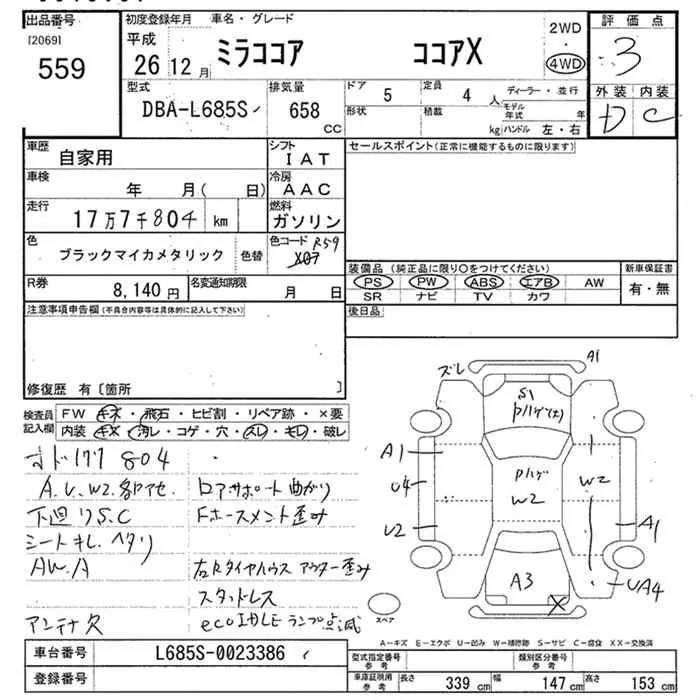 出品番号
[2069]
559
初度登録年月
平成
26 12 月
車名・グレード
ミラココア ココアX
2WD
・
4WD
評価点
3
外装 内装
D C
型式
DBA-L685S
排気量
658
CC
ドア
5
定員
4 人
ディーラー・並行
モデル年式 年
形状
積載
kg
ハンドル 左・右
車歴
自家用
シフト
IAT
車検
年 月( 日)
冷房
AAC
走行
17万7千804 km
燃料
ガソリン
色
ブラックマイカメタリック
色替
色コード R59
X07
R券
8,140 円
名変通知期限
月 日
セールスポイント(正常に機能するものに限ります)
装備品 (純正品に限り○をつけてください)
PS PW ABS エアB AW
SR ナビ TV カワ
新車保証書
有・無
後日品
注意事項申告欄(不具合内容等は具体的に記入して下さい)
修復歴 有〔箇所 〕
検査員
記入欄
FW キズ・飛石・ヒビ割・リペア跡・×要
内装 キズ・汚レ・コゲ・穴・スレ・キレ・破レ
804
A.U.W2.各部アセ.
ロアサポート曲がり
下廻りS.C
Fホースメント歪み
シートキレ.ヘタリ
AW.A
右Rタイヤハウス アウター歪み
スタッドレス
アンテナ欠
eco IDLEランプ点滅
ズレ
A1
S1
A1
U4
U2
W2
W2
A1
A3
UA4
X
スペア
A=キズ E=エクボ U=凹み W=補修跡 S=サビ C=腐食 XX=交換済
車台番号
L685S-0023386
登録番号
型式指定番号
参考
類別区分番号
参考
車庫証明用
参考
長さ 339 cm
幅 147 cm
高さ 153 cm